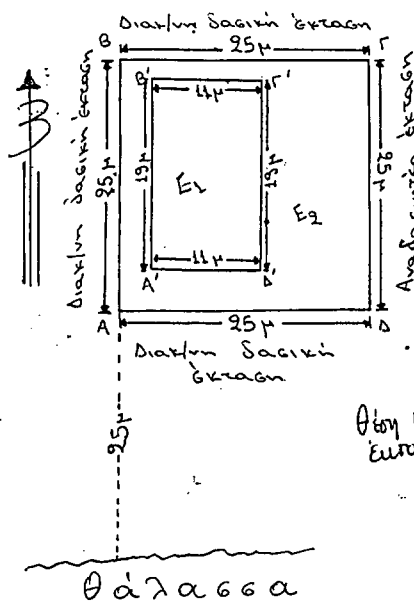 Διακ/νη δασική έκταση
25μ
Β
Γ
Β'
Γ'
11μ
Διακ/νη δασική έκταση
25μ
19μ
Ε1
19μ
Ε2
25μ
Αναδασωτέα έκταση
11μ
Α'
Δ'
Α
Δ
25μ
Διακ/νη δασική
έκταση
25μ
Θέση
Θάλασσα